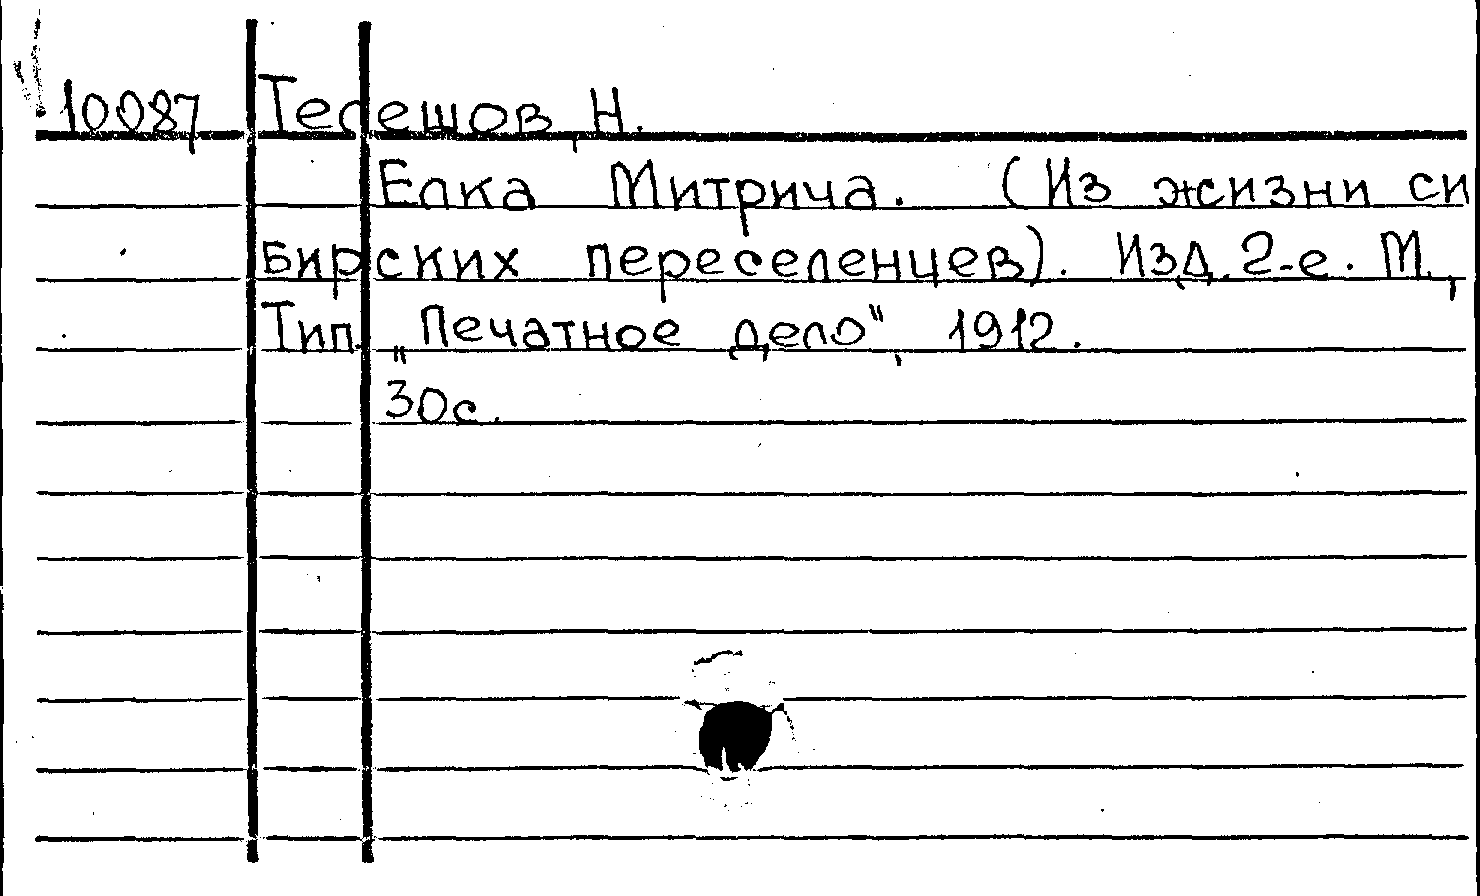 10087 Телешов, Н.
Елка Митрича. (Из жизни си
бирских переселенцев). Изд. 2-е. М.,
Тип. „Печатное дело", 1912.
30с.